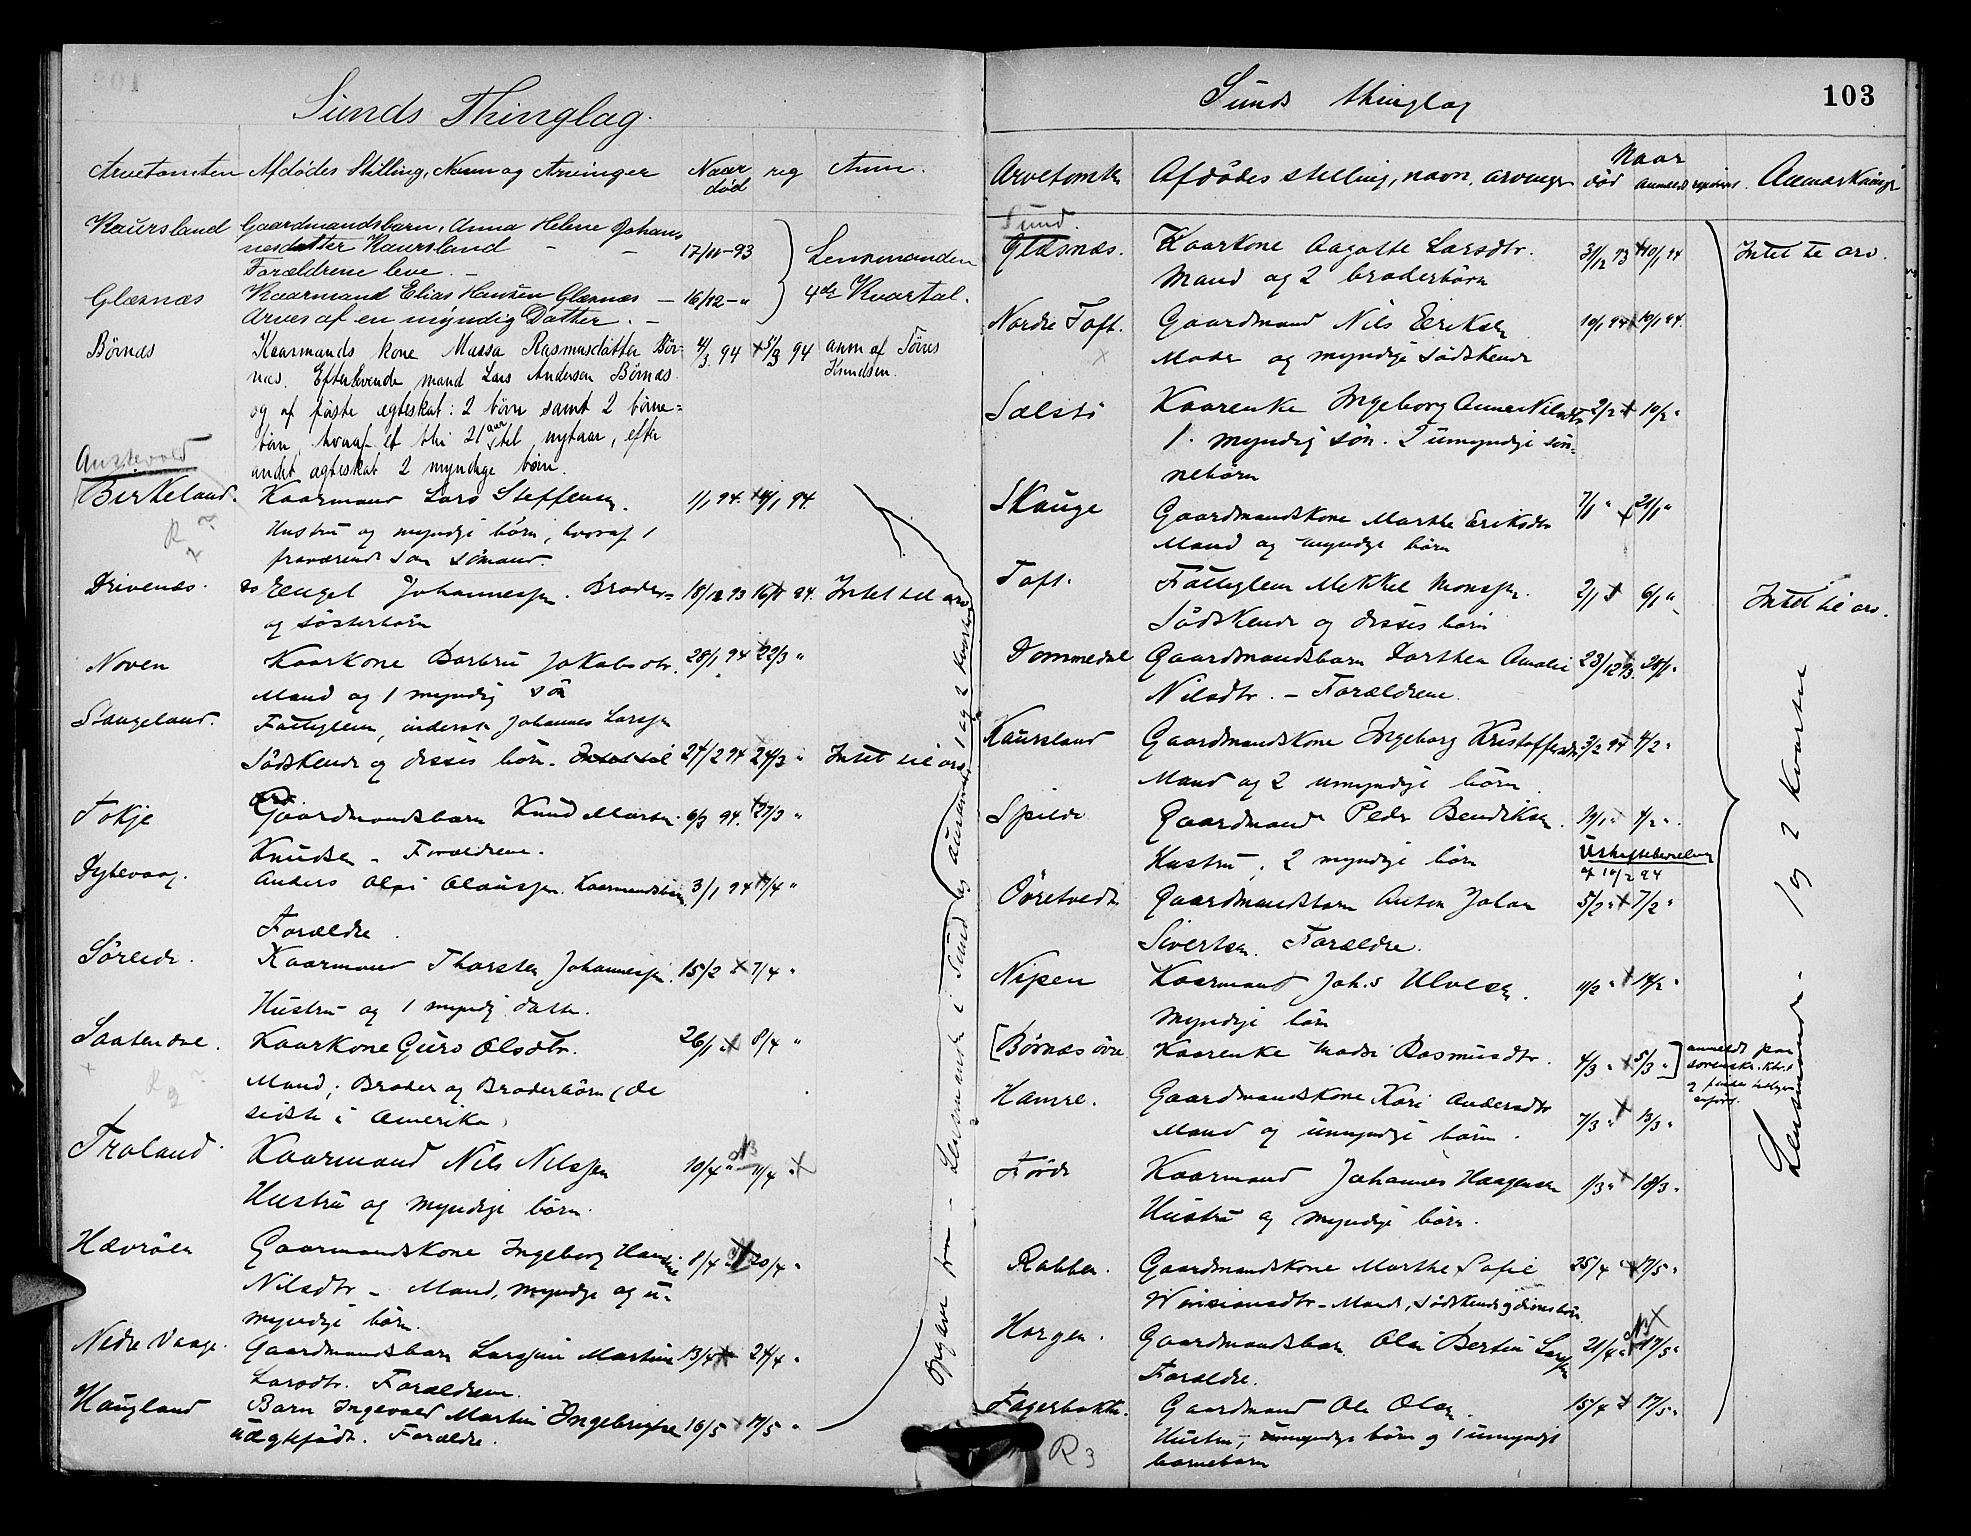 Sunds Thinglag.
Arvetomten Afdødes Stilling, Navn og Arvinger Naar død reg Anm.
Kaursland Gaardmandsbarn, Anna Helene Johan-
nesdatter Kaursland 17/11-93
Forældrene leve. Lensmanden
Glæsnæs Kaarmand Elias Hansen Glæsnæs 16/12-" 4de Kvartal.
Arves af en myndig Datter.
Børnæs Kaarmands kone Massa Rasmusdatter Bør- 4/3 94 5/3 94 anm af Tørres
næs. Efterlevende mand Lars Andersen Børnæs Knudsen.
og af første egteskab: 2 børn samt 2 børne=
børn, hvoraf et blir 21 aar til nytaar, efter
andet ægteskab 2 myndige børn.
Austevold
Birkeland. Kaarmand Lars Steffensen. 1/1 94. 4/1 94.
Hustru og myndige børn, hvoraf 1
fraværende søn sømand.
Drivenæs. Engel Johannessen. Broder= 18/12 93 16/1 94. Intet til arv
og søsterbørn
Noven Kaarkone Barbru Jakobsdtr. 28/1 94 22/3 "
Mand og 1 myndig søn
Stangeland. Fattiglem, inderst Johannes Larssen
Södskende og disses børn. 24/2 94 24/3 " Intet til arv
Tokje Gaardmandsbarn Knud Martin 6/3 94. 27/3 "
Knudsen - Forældrene.
Dybevaag. Anders Olai Olaussen. Kaarmandsbarn 3/1 94 7/4 "
Forældre.
Søreide. Kaarmand Thorsten Johannessen. 15/2 " 7/4 "
Hustru og 1 myndig datter.
Kaarkone Guro Olsdtr. 26/1 " 8/4 "
Mand, Broder og Broderbörn (de
sidste i Amerika)
Træland. Kaarmand Nils Nilssen 10/4 " 11/4 "
Hustru og myndige börn.
Hævröen Gaarmandskone Ingeborg 8/4 " 20/4 "
Nilsdtr - Mand, myndige og u-
myndige börn.
Nedre Vaage. Gaardmandsbarn Martine 13/4 24/4 "
Larsdtr. Forældrene.
Haugland Barn Ingevald Martin Ingebrigtsen 16/5 17/5 "
uægtefödt. Forældre.
Opgaver fra - Lensmande i Sund og Austevold 1 og 2 kvartal
R 3
Sunds thinglag 103
Arvetomten Afdödes stilling, navn, arvinger Naar död anmeldt registreret. Anmærkninger
Sund.
Glæsnæs. Kaarkone Aagotte Larsdtr. 31/12 93 10/1 94 Intet til arv.
Mand og 2 broderbörn
Nordre Toft. Gaardmand Nils Eriksen 10/1 94 10/1 94.
Moder og myndige södskende
Sælsto Kaarenke Ingeborg Anna Nilsdtr 2/2 " 10/2 "
1 myndig sön. 2 umyndige sön-
nebörn
Skauge Gaardmandskone Marthe Eriksdtr 7/1 " 21/1 "
Mand og myndige börn
Toft. Fattiglem Mekkel Monssen. 2/1 6/1 " Intet til arv.
Södskende og disses börn
Dommedal Gaardmandsbarn Dorthea Amalie 23/12 93. 28/1 "
Nilsdtr. - Forældrene.
Kaursland Gaardmandskone Ingeborg Kristoffersdtr 3/2 94 4/2 "
Mand og 2 umyndige börn.
Spilde Gaardmand Peder Bendiksen. 4/2 "
Hustru, 2 myndige börn Uskiftebevilling
af 10/2 94
Gaardmandsbarn Anton Johan 5/2 " 7/2 "
Sivertsen. Forældre.
Nipen Kaarmand Johs Ulvesen. 11/2 " 14/2 "
Myndige börn
[Børnæs övre Kaarenke Madsi Rasmusdtr. 4/3 " 5/3 "] anmeldt paa
sorenskr. kont.
Hamre. Gaardmandskone Kari Andersdtr 7/3 " 13/3 "
Mand og umyndige börn.
Förde Kaarmand Johannes Haagensen 1/3 " 18/3 "
Hustru og myndige börn.
Rabben. Gaardmandskone Marthe Sofie 25/4 17/5 "
Mand, södskende
Horgen. Gaardmandsbarn Olai Bertin Larssen 21/4 " 17/5 "
Forældre.
Fagerbakke. Gaardmand Ole Olsen. 15/4 " 17/5 "
Hustru, myndige börn og 1 umyndigt
barnebarn
Lensmanden. 1 og 2 kvartal